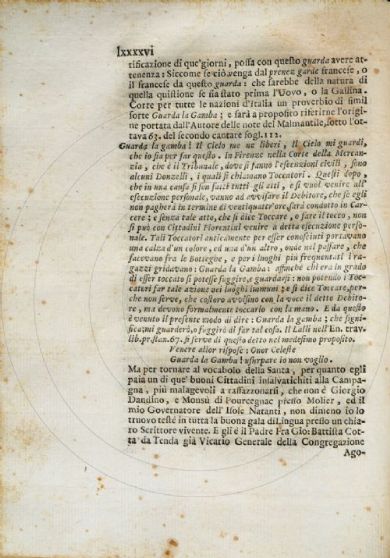 lxxxxvi
tificazione di que'giorni, possa con questo guarda avere atte-
nenza: Siccome se ciò venga dal prenez garde francese, o
il francese da questo guarda: che sarebbe della natura di
quella quistione se sia stato prima l'Uovo, o la Gallina.
Corre per tutte le nazioni d'Italia un proverbio di simil
sorte Guarda la Gamba; e sarà a proposito riferirne l'origi-
ne portata dall'Autore delle note del Malmantile, sotto l'ot-
tava 63. del secondo cantare fogl. 112.
Guarda la gamba! Il Cielo me ne liberi, Il Cielo mi guardi,
che io sia per far questo. In Firenze nella Corte della Mercan-
zia, cioè il Tribunale, dove si fanno l'esecuzioni civili, sono
alcuni Donzelli, i quali si chiamano Toccatori. Questi dopo,
che in una causa si son fatti tutti gli atti, e si vuol venire all'
esecuzione personale, vanno ad avvisare il Debitore, che se egli
non pagherà in termine di ventiquattr'ore, sarà condutto in Car-
cere; e senza tale atto, che si dice Toccare, o fare il tocco, non
si può con Cittadini Fiorentini venire a detta esecuzione perso-
nale. Tali Toccatori anticamente per esser conosciuti portavano
una calza d'un colore, ed una d'un altro, onde nel passare, che
facevano fra le Botteghe, e per i luoghi più frequentati i ra-
gazzi gridavano: Guarda la Gamba: affinchè chi era in grado
di esser toccato si potesse fuggire, e guardarsi: non potendo i Toc-
catori far tale azione nei luoghi immuni; e si dice Toccare, per-
che non serve, che costoro avvisino con la voce il detto Debito-
re, ma devono formalmente toccarlo con la mano. E da questo
è venuto il presente modo di dire: Guarda la gamba; che signi-
fica: mi guarderò, o fuggirò di far tal cosa. Il Lalli nell'En. trav.
lib. pr. stan. 67. si serve di questo detto nel medesimo proposito.
Venere allor rispose: Onor Celeste
Guarda la Gamba! usurpare io non voglio.
Ma per tornare al vocabolo della Santa, per quanto egli
paia un di que' buoni Cittadini insalvatichiti alla Campa-
gna, più malagevoli a raffazzonarsi, che non è Giorgio
Dandino, e Monsù di Pourcegnac presso Molier, ed il
mio Governatore dell'Isole Natanti, non dimeno io lo
truovo teste in tutta la buona gala di Lingua presso un chia-
ro Scrittore vivente. E gli è il Padre Fra Gio: Battista Cot-
ta da Tenda già Vicario Generale della Congregazione
Ago-